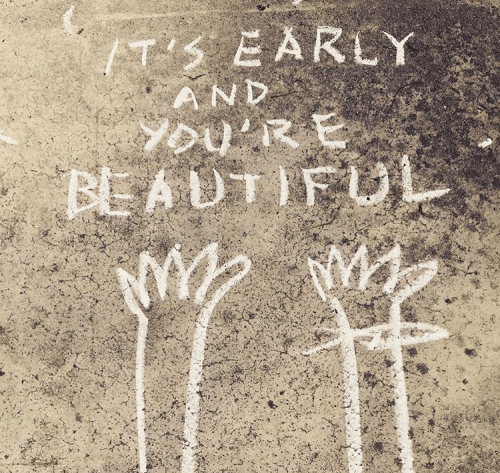 IT'S EARLY
AND
YOU'RE
BEAUTIFUL